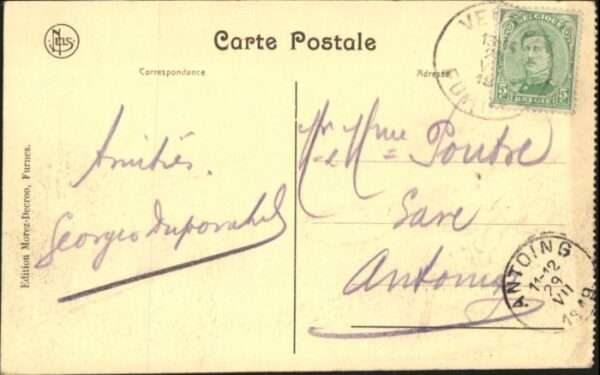 NELS
Carte Postale
Correspondance
Adresse
Edition Morez-Decroo, Furnes.
Amitiés.
Georges
Mr & Mme Poudre
Gare
Antoing
BELGIQUE
5 5
ANTOING
11-12
29
VII
1919